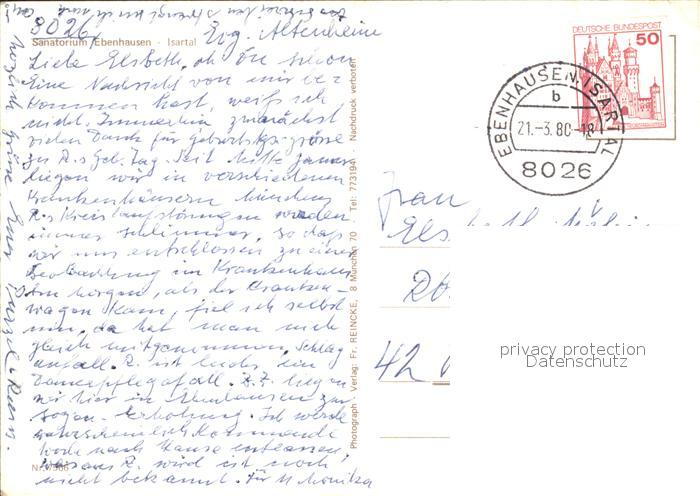 8026
Sanatorium Ebenhausen · Isartal
Evg. Altenheim
Liebe Elsbeth, ob Du schon
Eine Nachricht von mir be-
kommen hast, weiß ich
nicht. Immerhin zunächst
vielen Dank für Geburtstagsgrüsse
zu R.s Geb. Tag. Seit Mitte Januar
liegen wir in verschiedenen
Krankenhäusern München
R.s Kreislaufstörungen wurden
immer schlimmer, so daß
wir uns entschlossen zu einer
Beobachtung im Krankenhaus
Am Morgen, als der Kranken-
wagen kam, fiel ich selbst
um, da hat man mich
gleich mitgenommen, Schlag-
anfall. R. ist leider ein
Dauerpflegefall. Z. Z. liegen
wir hier in Ebenhausen zur
sogen. Erholung. Ich werde
wahrscheinlich kommende
Woche nach Hause entlassen,
R. wird ist noch
nicht bekannt. Für
Nr. 7566
Photograph. Verlag: Fr. REINCKE, 8 München 70 Tel: 773194 Nachdruck verboten
DEUTSCHE BUNDESPOST
50
EBENHAUSEN, ISARTAL
b
21.-3.80-18
8026
Frau
42
privacy protection
Datenschutz